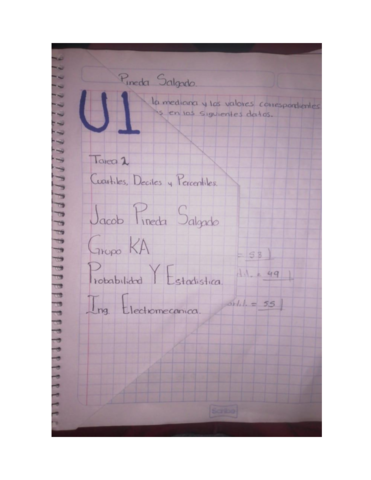 Pineda Salgado
U1
la mediana y los valores correspondientes
en los siguientes datos.
Tarea 2
Cuartiles, Deciles y Percentiles
Jacob Pineda Salgado
= 53
Grupo KA
= 49
Probabilidad Y Estadistica
Ing. Electromecanica
= 55